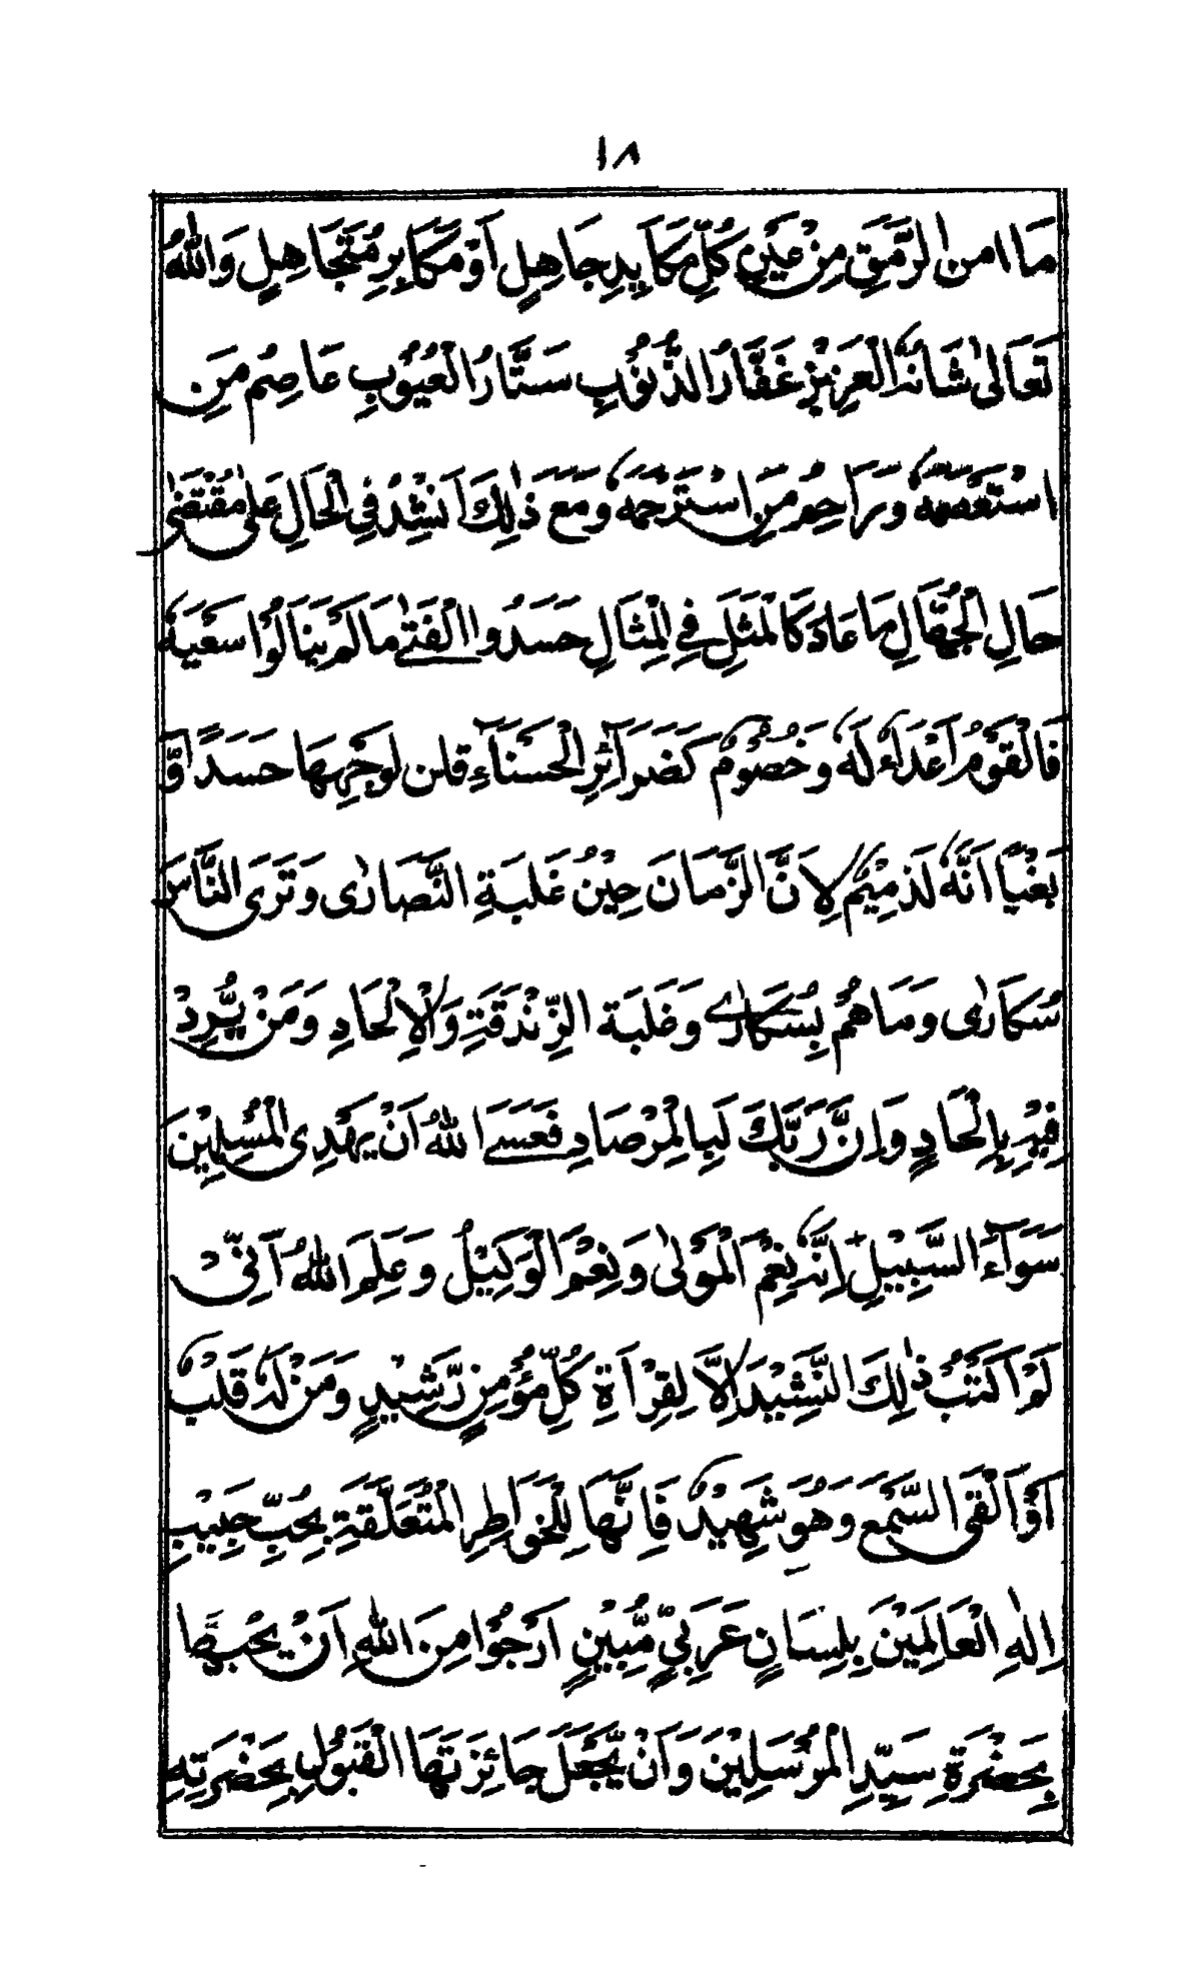 ١٨
مَا اٰمن الرَّمَقِ مِنْ عَيْنِ كُلِّ مَكَايِدِ جَاهِلٍ اَوْ مَكَابِرِ مُتَجَاهِلٍ وَاللّٰهُ
تَعَالٰى شَانُهُ الْعَزِيْزُ غَفَّارُ الذُّنُوْبِ سَتَّارُ الْعُيُوْبِ عَاصِمُ مَنِ
اسْتَعْصَمَهٗ وَرَاحِمُ مَنِ اسْتَرْحَمَهٗ وَمَعَ ذٰلِكَ اَنْشِدُ فِي الْحَالِ عَلٰى مُقْتَضٰى
حَالِ الْجُهَّالِ مَا عَادَ كَالْمَثَلِ فِي الْمِثَالِ حَسَدُوا الْفَتٰى مَا لَمْ يَنَالُوْا سَعْيَهٗ
فَالْقَوْمُ اَعْدَاءٌ لَهٗ وَخُصُوْمٌ كَضَرَآئِرِ الْحَسْنَآءِ قلن لِوَجْهِهَا حَسَدًا وَّ
بَغْيًا اَنَّهٗ لَذمِيْمٌ لِاَنَّ الزَّمَانَ حِيْنُ غَلَبَةِ النَّصَارٰى وَتَرَى النَّاسَ
سُكَارٰى وَمَا هُمْ بِسُكَارٰى وَغَلَبَة الزِّنْدَقَةِ وَالْاِلْحَادِ وَمَنْ يُّرِدْ
فِيْهِ بِاِلْحَادٍ وَاِنَّ رَبَّكَ لَبِالْمِرْصَادِ فَعَسَے اللّٰهُ اَنْ يَهْدِى الْمُسْلِمِيْنَ
سَوَآءَ السَّبِيْلِ اِنَّهٗ نِعْمَ الْمَوْلٰى وَنِعْمَ الْوَكِيْلُ وَعَلِمَ اللّٰهُ اَنِّيْ
لَمْ اَكْتُبْ ذٰلِكَ النَّشِيْدَ اِلَّا لِقِرْأَةِ كُلِّ مُؤْمِنٍ رَّشِيْدٍ وَمَنْ لَهٗ قَلْبٌ
اَوْ اَلْقَى السَّمْعَ وَهُوَ شَهِيْدٌ فَاِنَّهَا لِلْخَوَاطِرِ الْمُتَعَلِّقَةِ بِحُبِّ حَبِيْبِ
اِلٰهِ الْعَالَمِيْنَ بِلِسَانٍ عَرَبِيٍّ مُّبِيْنٍ اَرْجُوْا مِنَ اللّٰهِ اَنْ يُحِبَّهَا
بِحَضْرَةِ سَيِّدِ الْمُرْسَلِيْنَ وَاَنْ يَّجْعَلَ جَائِزَتَهَا الْقَبُوْلَ بِحَضْرَتِهٖ